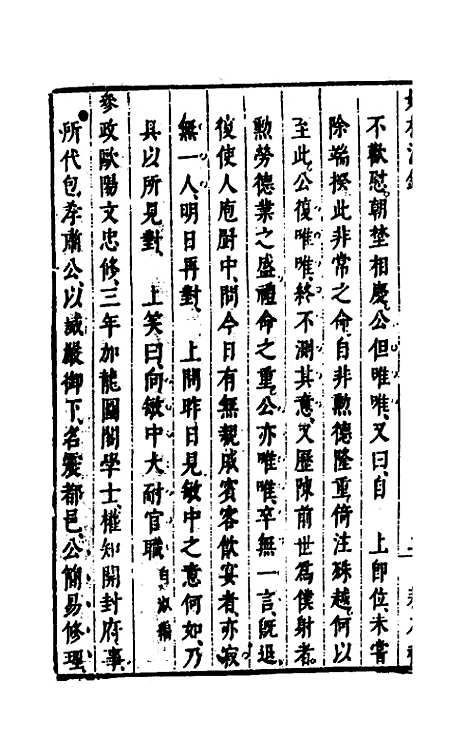 不歡慰朝埜相慶公但唯唯又曰自　上卽位未嘗
除端揆此非常之命自非勲德隆重倚注殊越何以
至此公復唯唯終不測其意又歷陳前世爲僕射者
勲勞德業之盛禮命之重公亦唯唯卒無一言旣退
復使人庖厨中問今日有無親戚賓客飲宴者亦寂
無一人明日再對　上問昨日見敏中之意何如乃
具以所見對　上笑曰向敏中大耐官職
參政歐陽文忠修三年加龍圖閣學士權知開封府事
所代包孝肅公以威嚴御下名震都邑公簡易修理